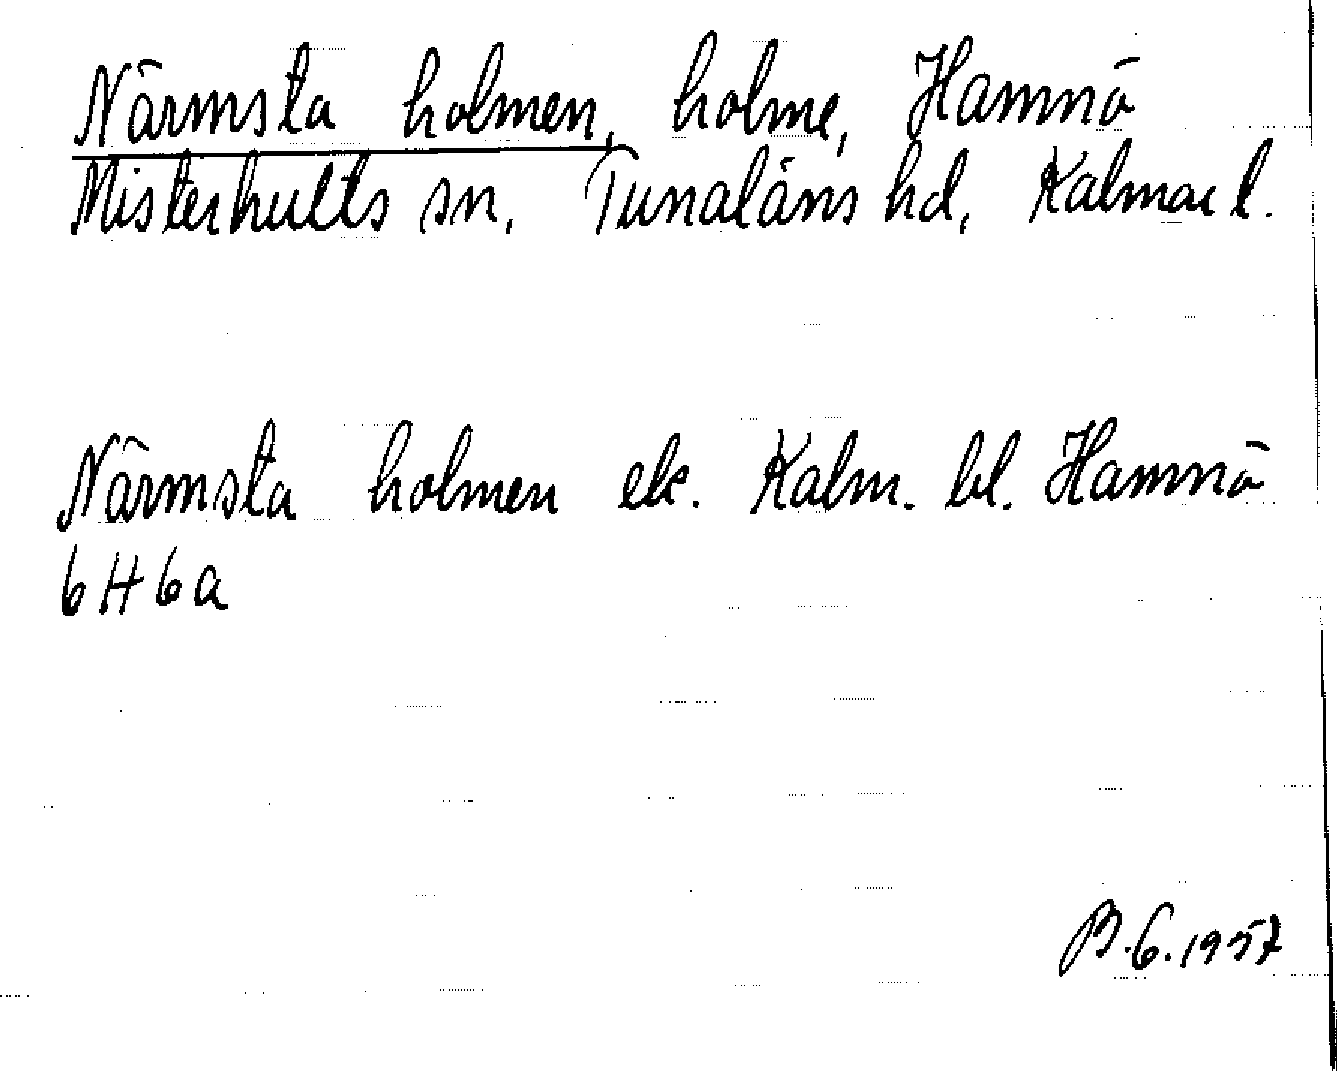 Närmsta holmen, holme, Hamnö
Misterhults sn, Tunaläns hd, Kalmar l.
Närmsta holmen ek. Kalm. bl. Hamnö
6H6a
B.G. 1957